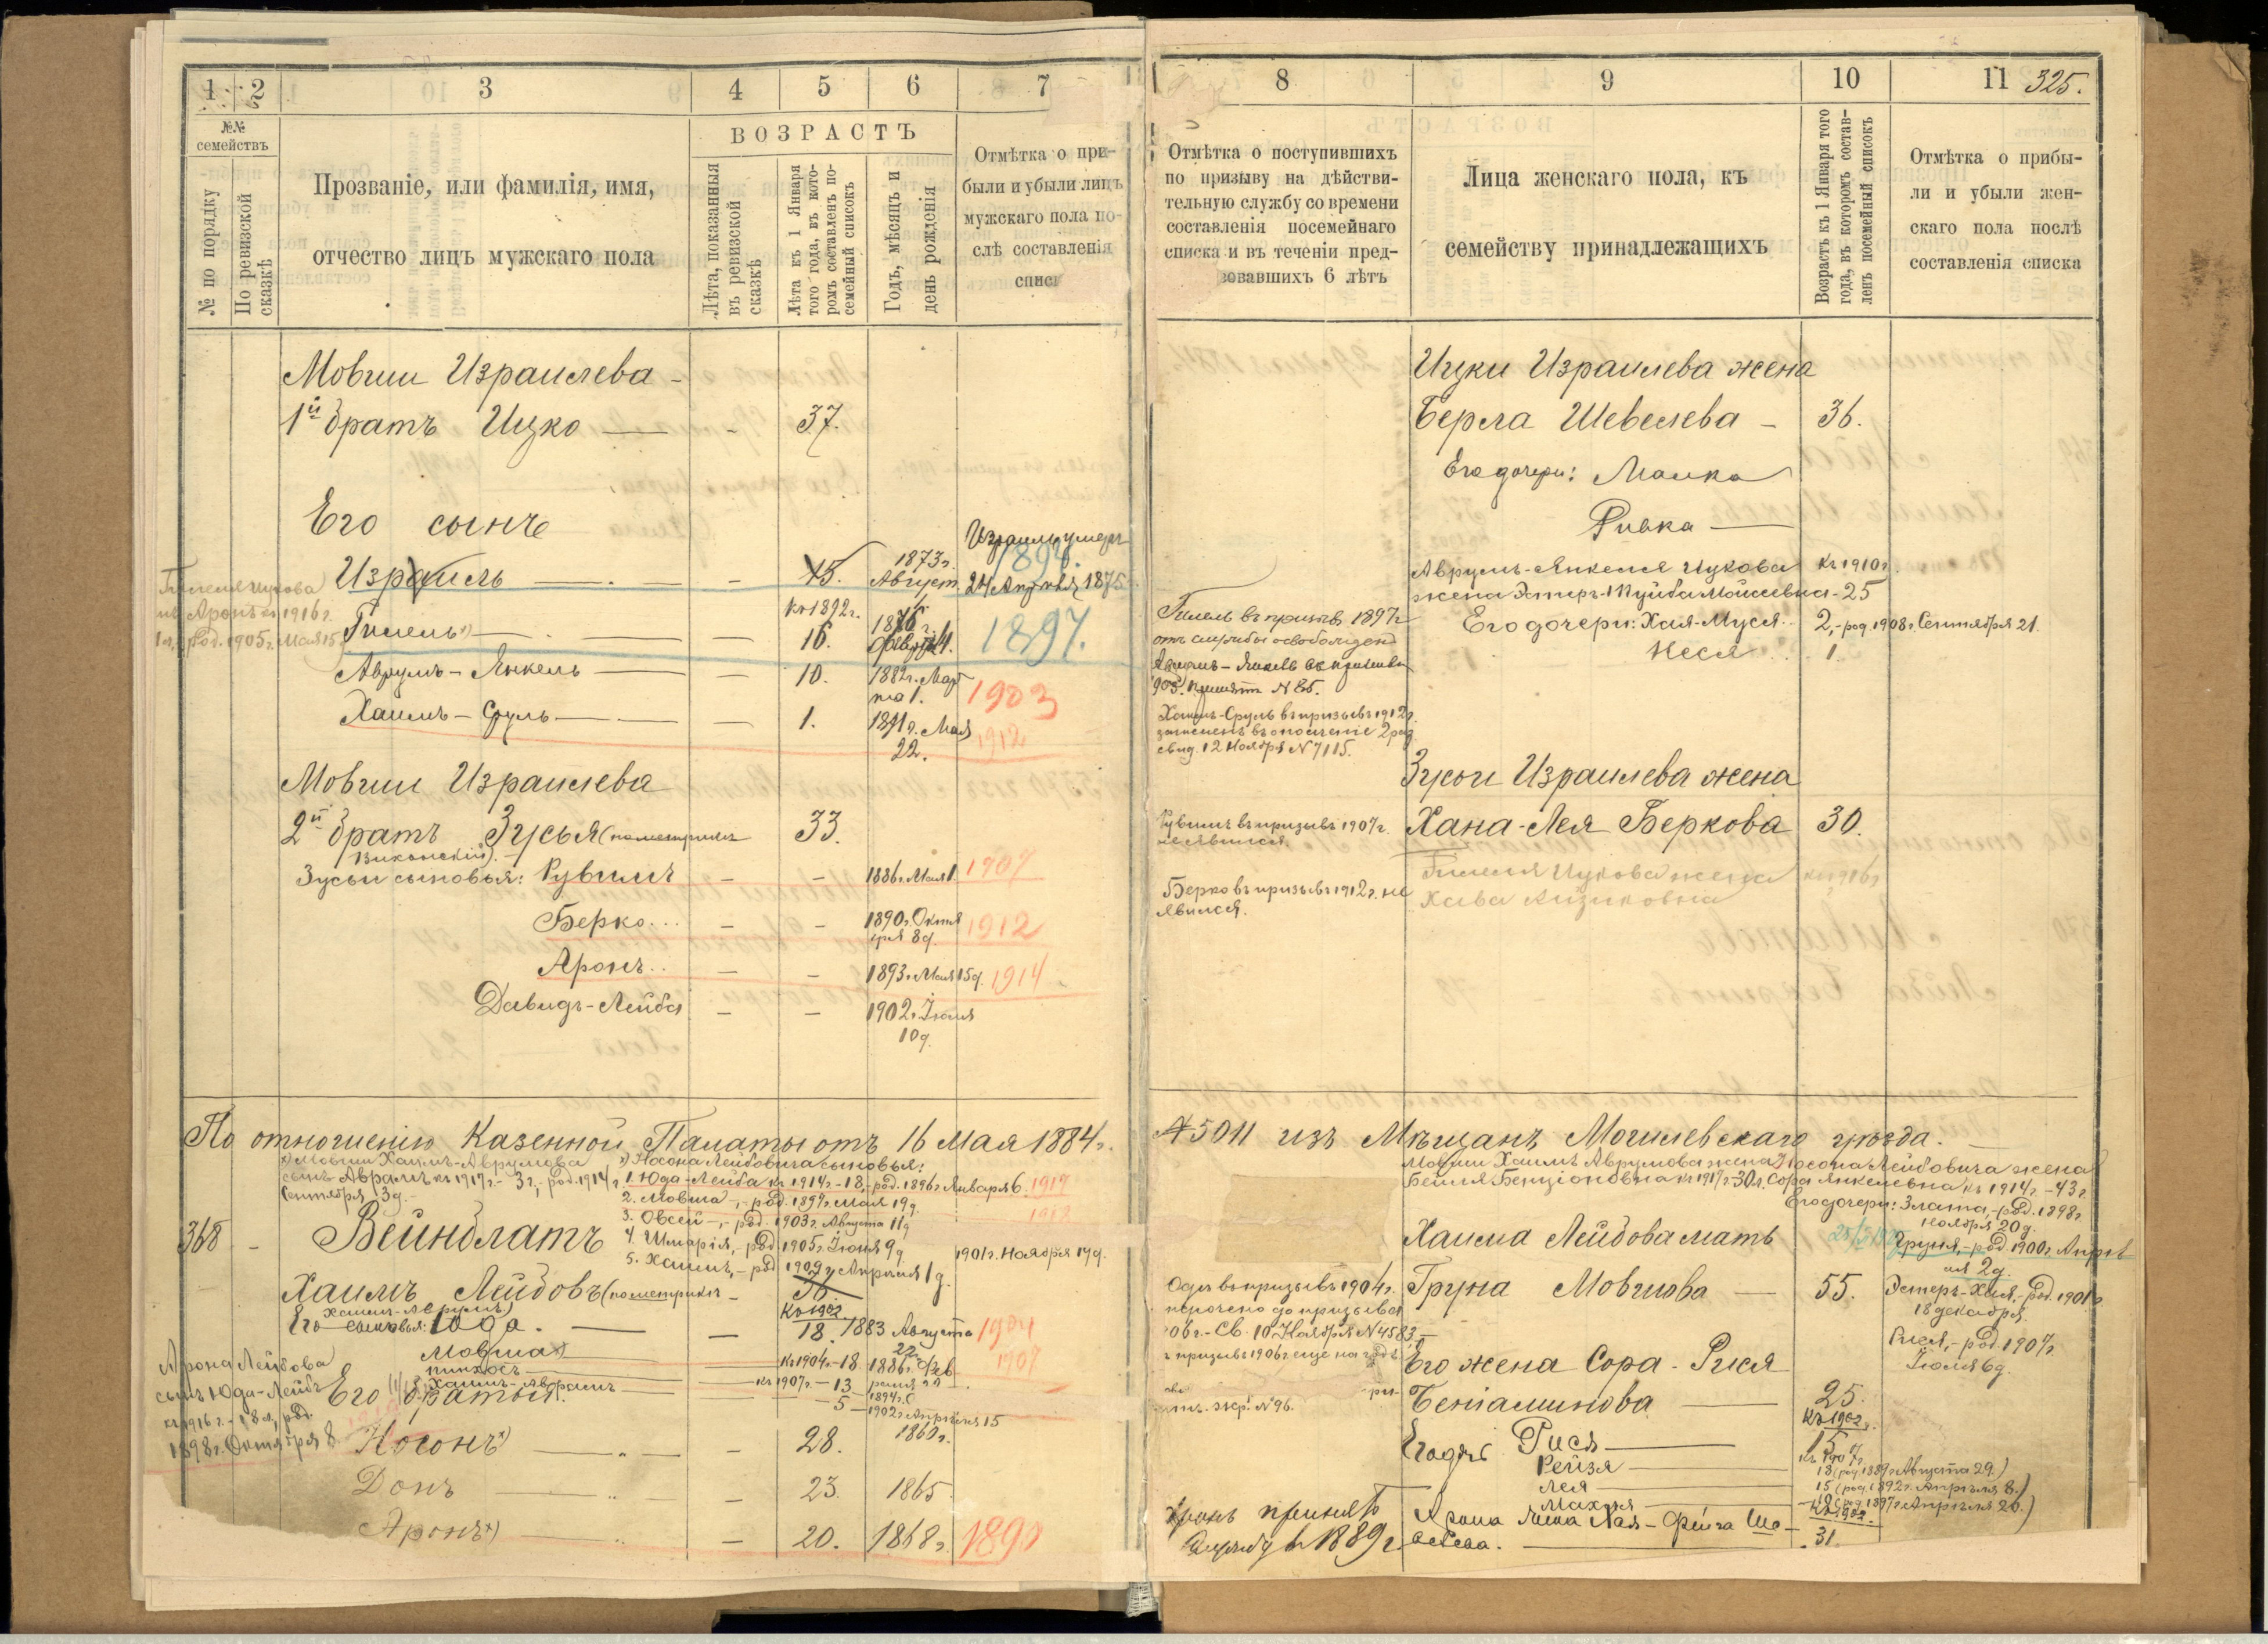 1 2 3 4 5 6 7
№№ семействъ
№ по порядку
По ревизской сказкѣ
Прозваніе, или фамилія, имя,
отчество лицъ мужскаго пола
ВОЗРАСТЪ
Лѣта, показанныя
въ ревизской
сказкѣ
Лѣта къ 1 Января
того года, въ кото-
ромъ составленъ по-
семейный списокъ
Годъ, мѣсяцъ и
день рожденія
Отмѣтка о при-
были и убыли лицъ
мужскаго пола по-
слѣ составленія
списк
Мовши Израилева -
1й братъ Ицко — - 37.
Его сынъ
Израиль — - 15. 1873г. Август.
Израиль умеръ
24 Апрѣля 1875
1894
Гилеля Ицкова
Аронъ 1916г.
род. 1905г. Мая 15
Гилель — къ 1892г. 16. 1876г.
1897.
Аврумъ-Янкель — 10. 1882г. Мар
та 1. 1903
Хаимъ-Сруль — 1. 1891г. Мая
22. 1912
Мовши Израилева
2й братъ Зусья (по метрикѣ 33.
Зусьи сыновья: Рувимъ - - 1886г. Мая 1. 1907
Берко... - - 1890г. Октя
бря 8д. 1912
Аронъ.. - - 1893г. Мая 15д. 1914
Давидъ-Лейба - - 1902г. Іюля
10д.
По отношенію Казенной Палаты отъ 16 Мая 1884г.
Мовши Хаимъ-Аврумова
сынъ Авраамъ къ 1917г.- 3г., род. 1914г.
Сентября 3д.
Носона Лейбовича сыновья:
1. Юда-Лейба къ 1914г.-18,- род. 1896г. Января 6. 1917
2. Мовша -,- род. 1897г. Мая 19д.
3. Овсей -,- род. 1903г. Августа 11д
4. Шмарія,- род. 1905г. Іюня 9д
5. Хаимъ,- род. 1909г. Апрѣля 1д.
1901г. Ноября 19д.
368 - Вейнблатъ
Хаимъ Лейбовъ (по метрикѣ -
Хаимъ-Аврумъ)
Его сыновья: Юда. — - къ 1902 18. 1883 Августа
22. 1904
Мовша — къ 1904г.-18. 1886г. Фев
раля 22 1907
Пинхосъ — къ 1907г.- 13 1894г.
Хаимъ-Авраамъ — 5 — 1902г. Апрѣля 15
Арона Лейбова
сынъ Юда-Лейба
къ 1916г.- 18л, род.
1898г. Октября 8.
Его братья:
Носонъ — - 28. 1860г.
Донъ — - 23. 1865
Аронъ — - 20. 1868г. 1890
8 9 10 11 325.
Отмѣтка о поступившихъ
по призыву на дѣйстви-
тельную службу со времени
составленія посемейнаго
списка и въ теченіи пред-
зовавшихъ 6 лѣтъ
Лица женскаго пола, къ
семейству принадлежащихъ
Возрастъ къ 1 Января того
года, въ которомъ состав-
ленъ посемейный списокъ
Отмѣтка о прибы-
ли и убыли жен-
скаго пола послѣ
составленія списка
Ицки Израилева жена
Берла Шевелева - 36.
Его дочери: Малка
Ривка —
Аврумъ-Янкеля Ицкова къ 1910г.
жена Эстеръ- Мойсеевна - 25
Его дочери: Хая-Муся.. 2,- род. 1908г. Сентября 21.
Неся... 1.
Гилель въ призывъ 1897г
отъ службы освобожденъ
Аврумъ-Янкель въ призывъ
905. принятъ № 85.
Хаимъ-Сруль въ призывъ 1912г.
зачисленъ въ ополченіе 2 раз.
свид. 12 Ноября № 7115.
Зусьи Израилева жена
Рувимъ въ призывъ 1907г.
не явился.
Хана-Лея Беркова 30.
Гилеля Ицкова жена къ 1916г
Хава Айзиковна
Берко въ призывъ 1912г. не
явился.
№ 5011 изъ Мѣщанъ Могилевскаго уѣзда. —
Мовши Хаимъ Аврумова жена
Бейля Бенціоновна къ 1917г.-30л.
Носона Лейбовича жена
Сора Янкелевна къ 1914г.-43г.
Его дочери: Злата,- род. 1898г.
Ноября 20д.
Груня,- род. 1900г. Апрѣ
ля 2д.
Эстеръ-Хая,- род. 1901г
18 декабря.
Рися,- род. 1907г.
Іюля 6д.
Хаима Лейбова мать
Груна Мовшова — 55.
въ призывъ 1904г.
до призыва
06г.- Св. 10 Ноября № 4583.
призывъ 1906г. еще на годъ
№ 96.
Его жена Сора-Рися
Беніаминова — 25.
къ 1902г.
Рися — 15
Рейзя — къ 1907г. 18 (род. 1889г. Августа 29.)
Лея — 15 (род. 1892г. Апрѣля 8.)
Махля — 10 (род. 1897г. Апрѣля 20.)
Аронъ принятъ
службу въ 1889г.
Арона жена Хая-Фейга
къ 1902.
31.